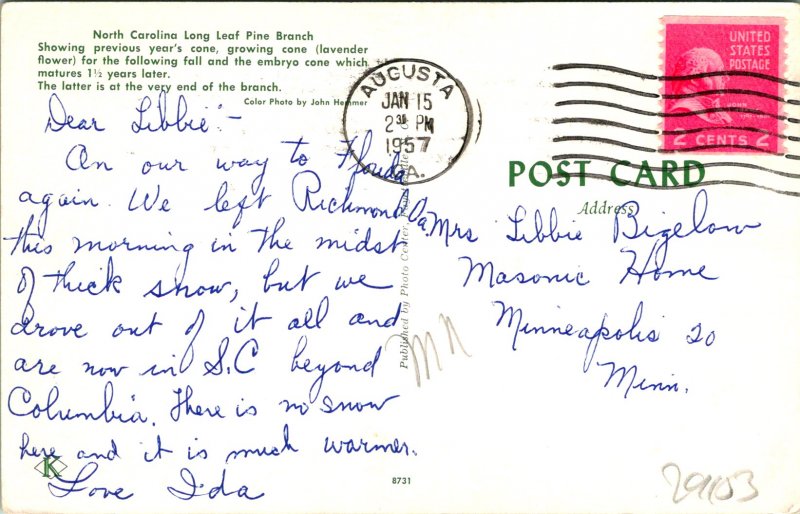 North Carolina Long Leaf Pine Branch
Showing previous year's cone, growing cone (lavender
flower) for the following fall and the embryo cone which
matures 1½ years later.
The latter is at the very end of the branch.
Color Photo by John Hemmer
Dear Libbie:-
On our way to Florida
again. We left Richmond Va.
this morning in the midst
of thick snow, but we
drove out of it all and
are now in S.C beyond
Columbia. There is no snow
here and it is much warmer.
Love Ida
K
8731
Published by Photo Center,
AUGUSTA
JAN 15
2 30 PM
1957
GA.
UNITED
STATES
POSTAGE
JOHN
2 CENTS 2
POST CARD
Address
Mrs Libbie Bigelow
Masonic Home
Minneapolis 20
Minn.
29103